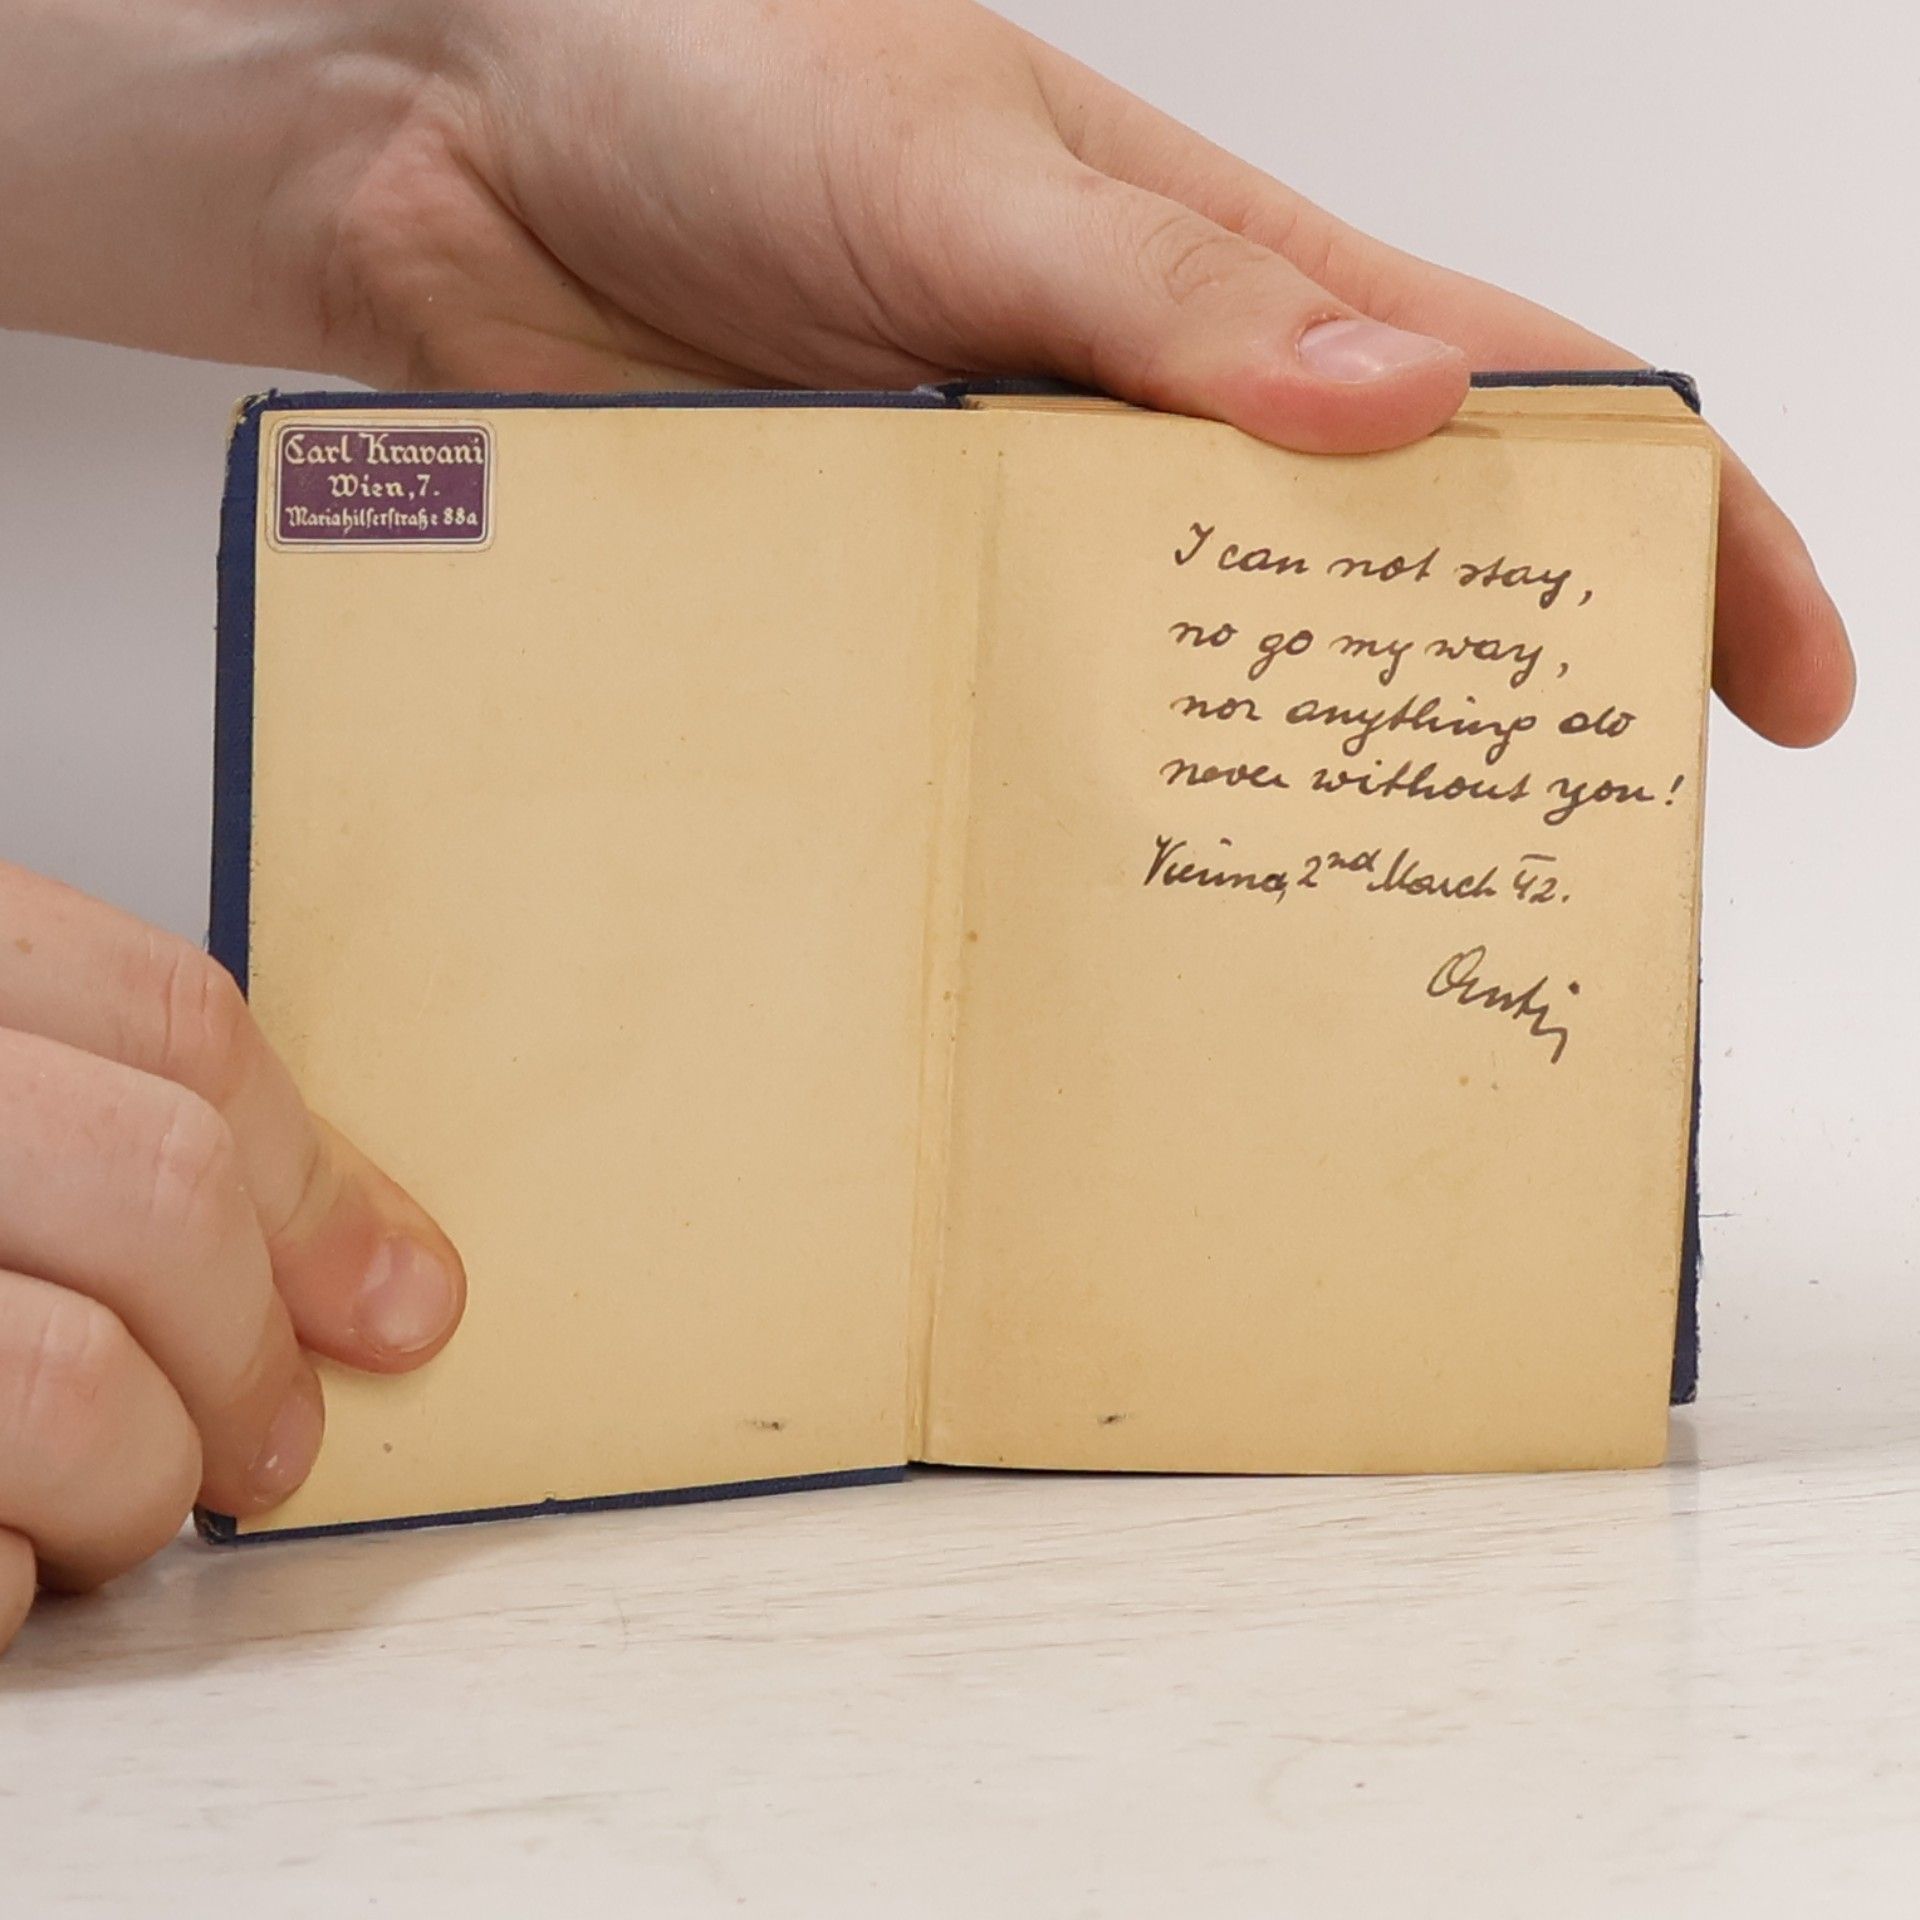 Carl Kravani
Wien, 7.
Mariahilferstraße 88a
I can not stay,
no go my way,
nor anything do
never without you!
Vienna, 2nd March 42.